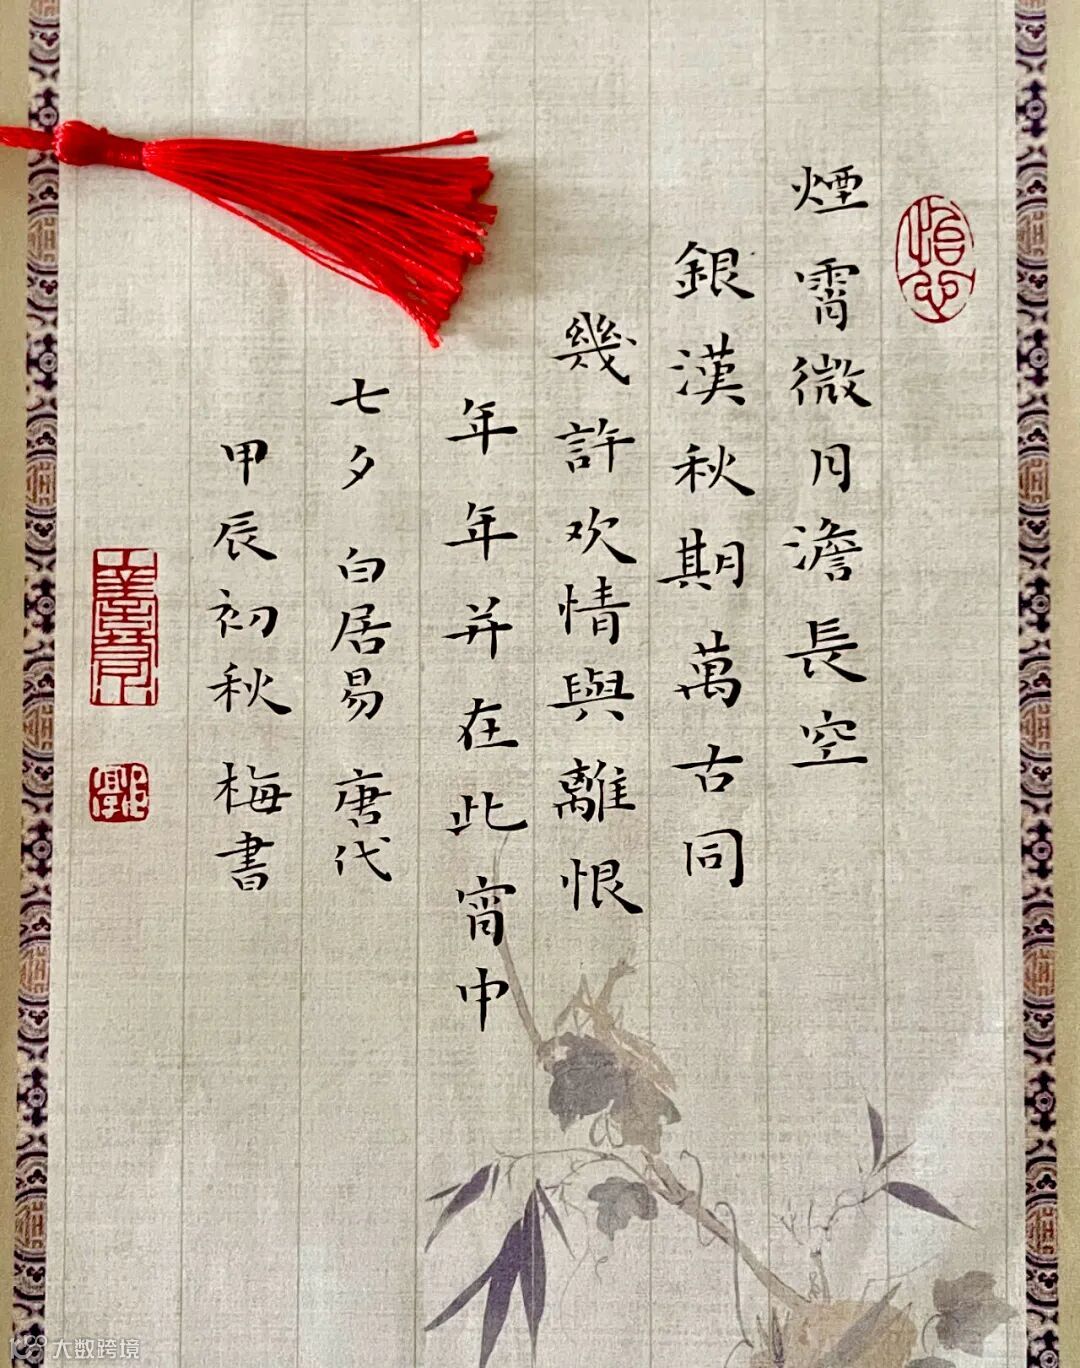 煙霄微月澹長空
銀漢秋期萬古同
幾許欢情與離恨
年年并在此宵中
七夕 白居易 唐代
甲辰初秋 梅書
怡心
大数跨境